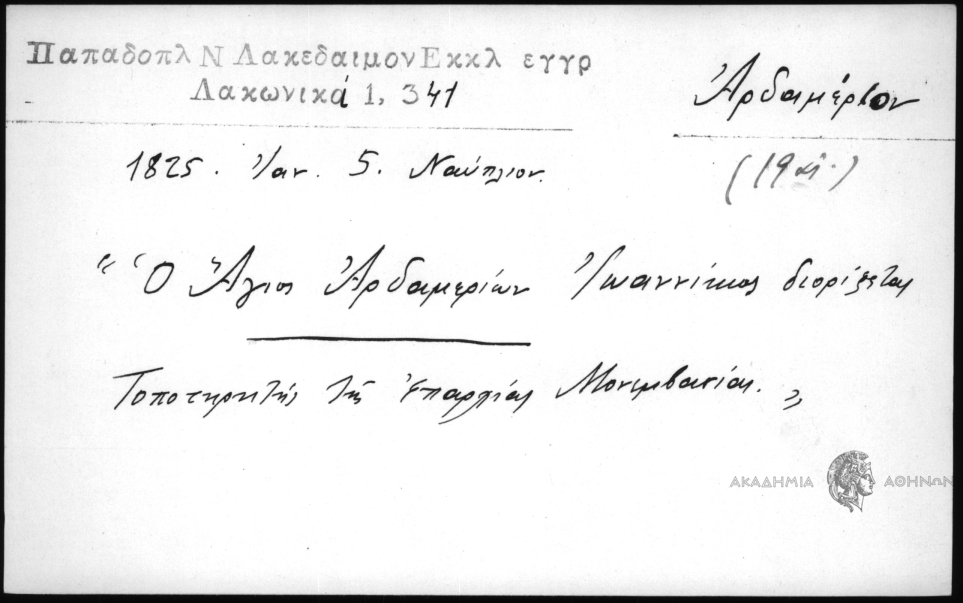 Παπαδοπλ Ν Λακεδαιμον Εκκλ εγγρ
Λακωνικά 1, 341
Ἀρδαμέριον
1825. Ἰαν. 5. Ναύπλιον.
(19 αἰ.)
"Ὁ Ἅγιος Ἀρδαμερίων Ἰωαννίκιος διορίζεται
Τοποτηρητής τῆς Ἐπαρχίας Μονεμβασίας."
ΑΚΑΔΗΜΙΑ ΑΘΗΝΩΝ